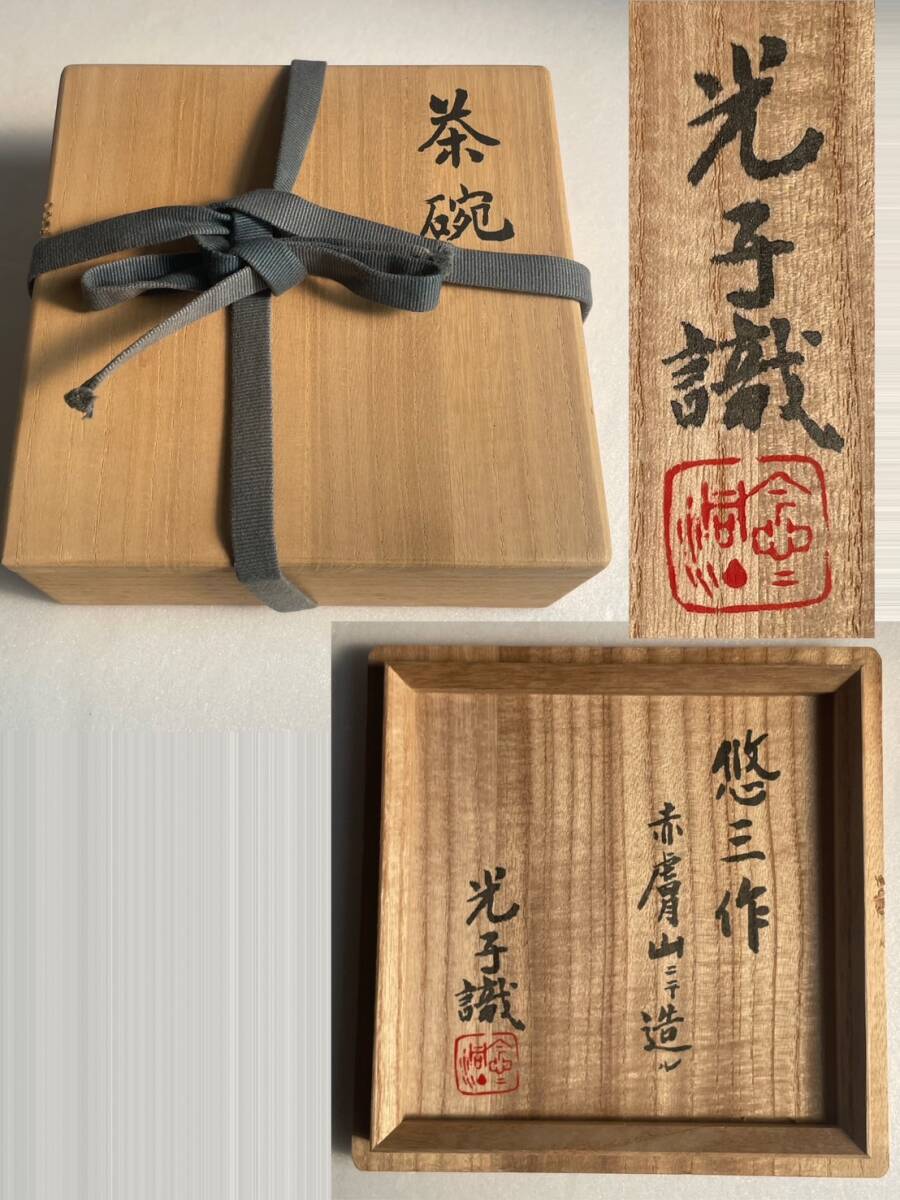 茶碗
光子識
悠三作
赤膚山ニテ造ル
光子識